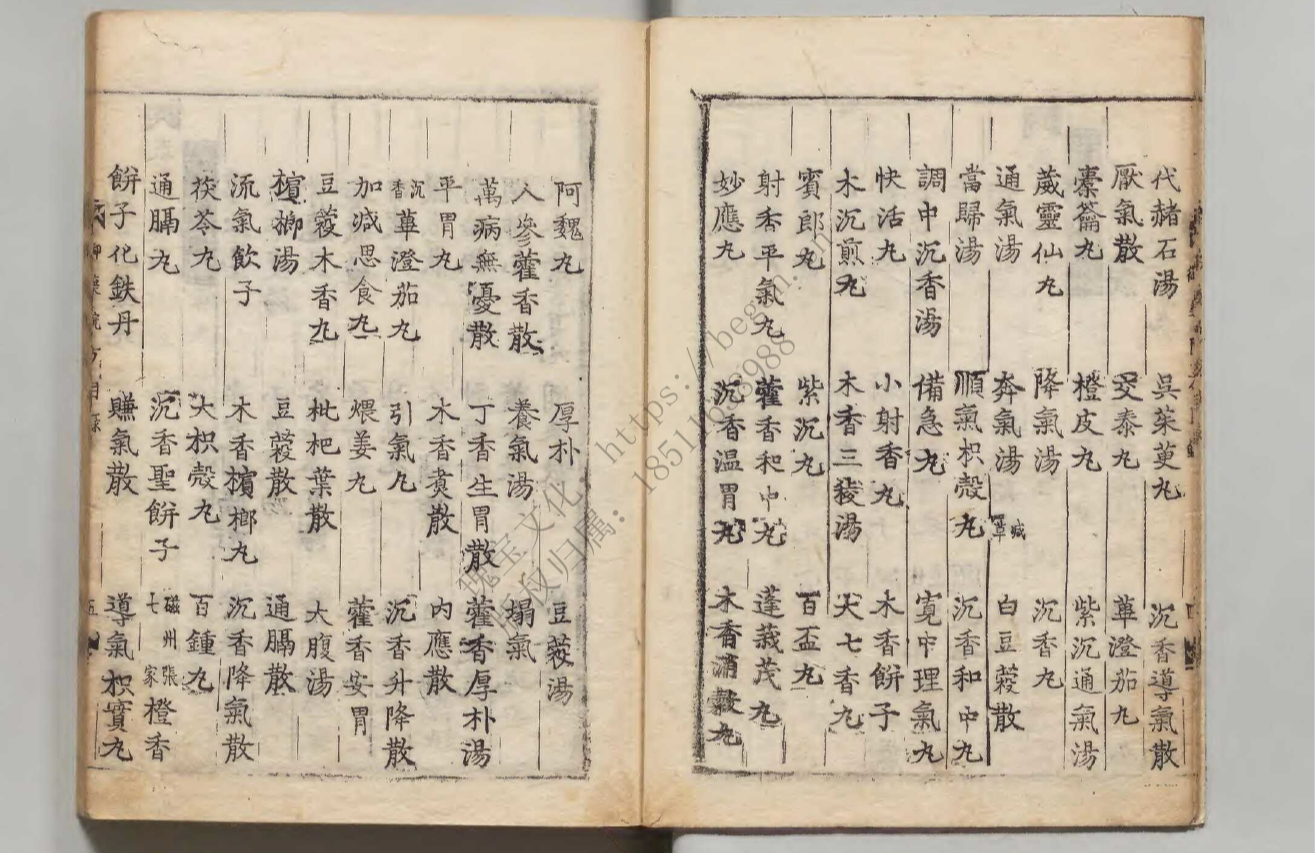 代赭石湯 吳茱萸丸 沉香導氣散
厭氣散 交泰丸 蓽澄茄丸
橐籥丸 橙皮丸 紫沉通氣湯
葳靈仙丸 降氣湯 沉香丸
通氣湯 奔氣湯 白豆蔲散
當歸湯 順氣枳殼丸 沉香和中丸
調中沉香湯 備急丸 寬中理氣丸
快活丸 小射香丸 木香餅子
木沉煎丸 木香三稜湯 大七香丸
賓郎丸 紫沉丸 百盃丸
射香平氣丸 藿香和中丸 蓬莪茂丸
妙應丸 沉香温胃丸 木香消穀丸
阿魏丸 厚朴 豆蔲湯
人參藿香散 養氣湯 塌氣
萬病無憂散 丁香生胃散 藿香厚朴湯
平胃丸 木香煑散 内應散
沉香蓽澄茄丸 引氣丸 沉香升降散
加减思食丸 煨姜丸 藿香安胃
豆蔲木香丸 枇杷葉散 大腹湯
檳榔湯 豆蔲散 通膈散
流氣飲子 木香檳榔丸 沉香降氣散
茯苓丸 大枳殼丸 百鍾丸
通膈丸 沉香聖餅子 磁州張七家橙香
餅子化鉄丹 賺氣散 導氣枳實丸
五
https://begbn.
18511693988
瑰宝文化
版权归属：